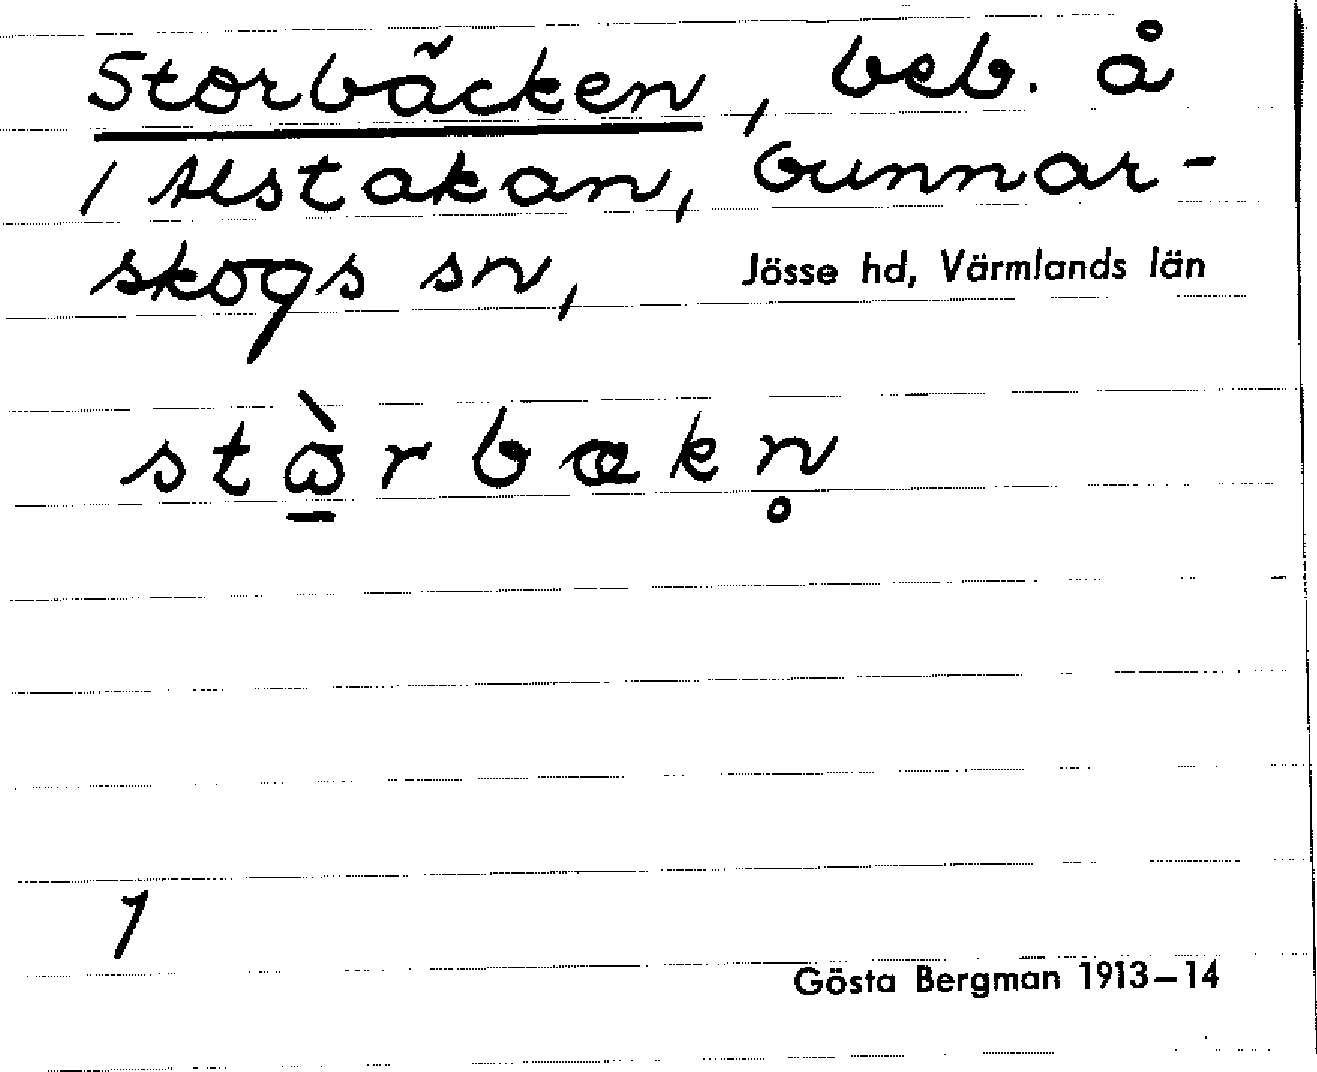 Storbäcken, beb. å
1 Alstakan, Gunnar-
skogs sn, Jösse hd, Värmlands län
stɷ̠̀rbækn̥
1
Gösta Bergman 1913–14